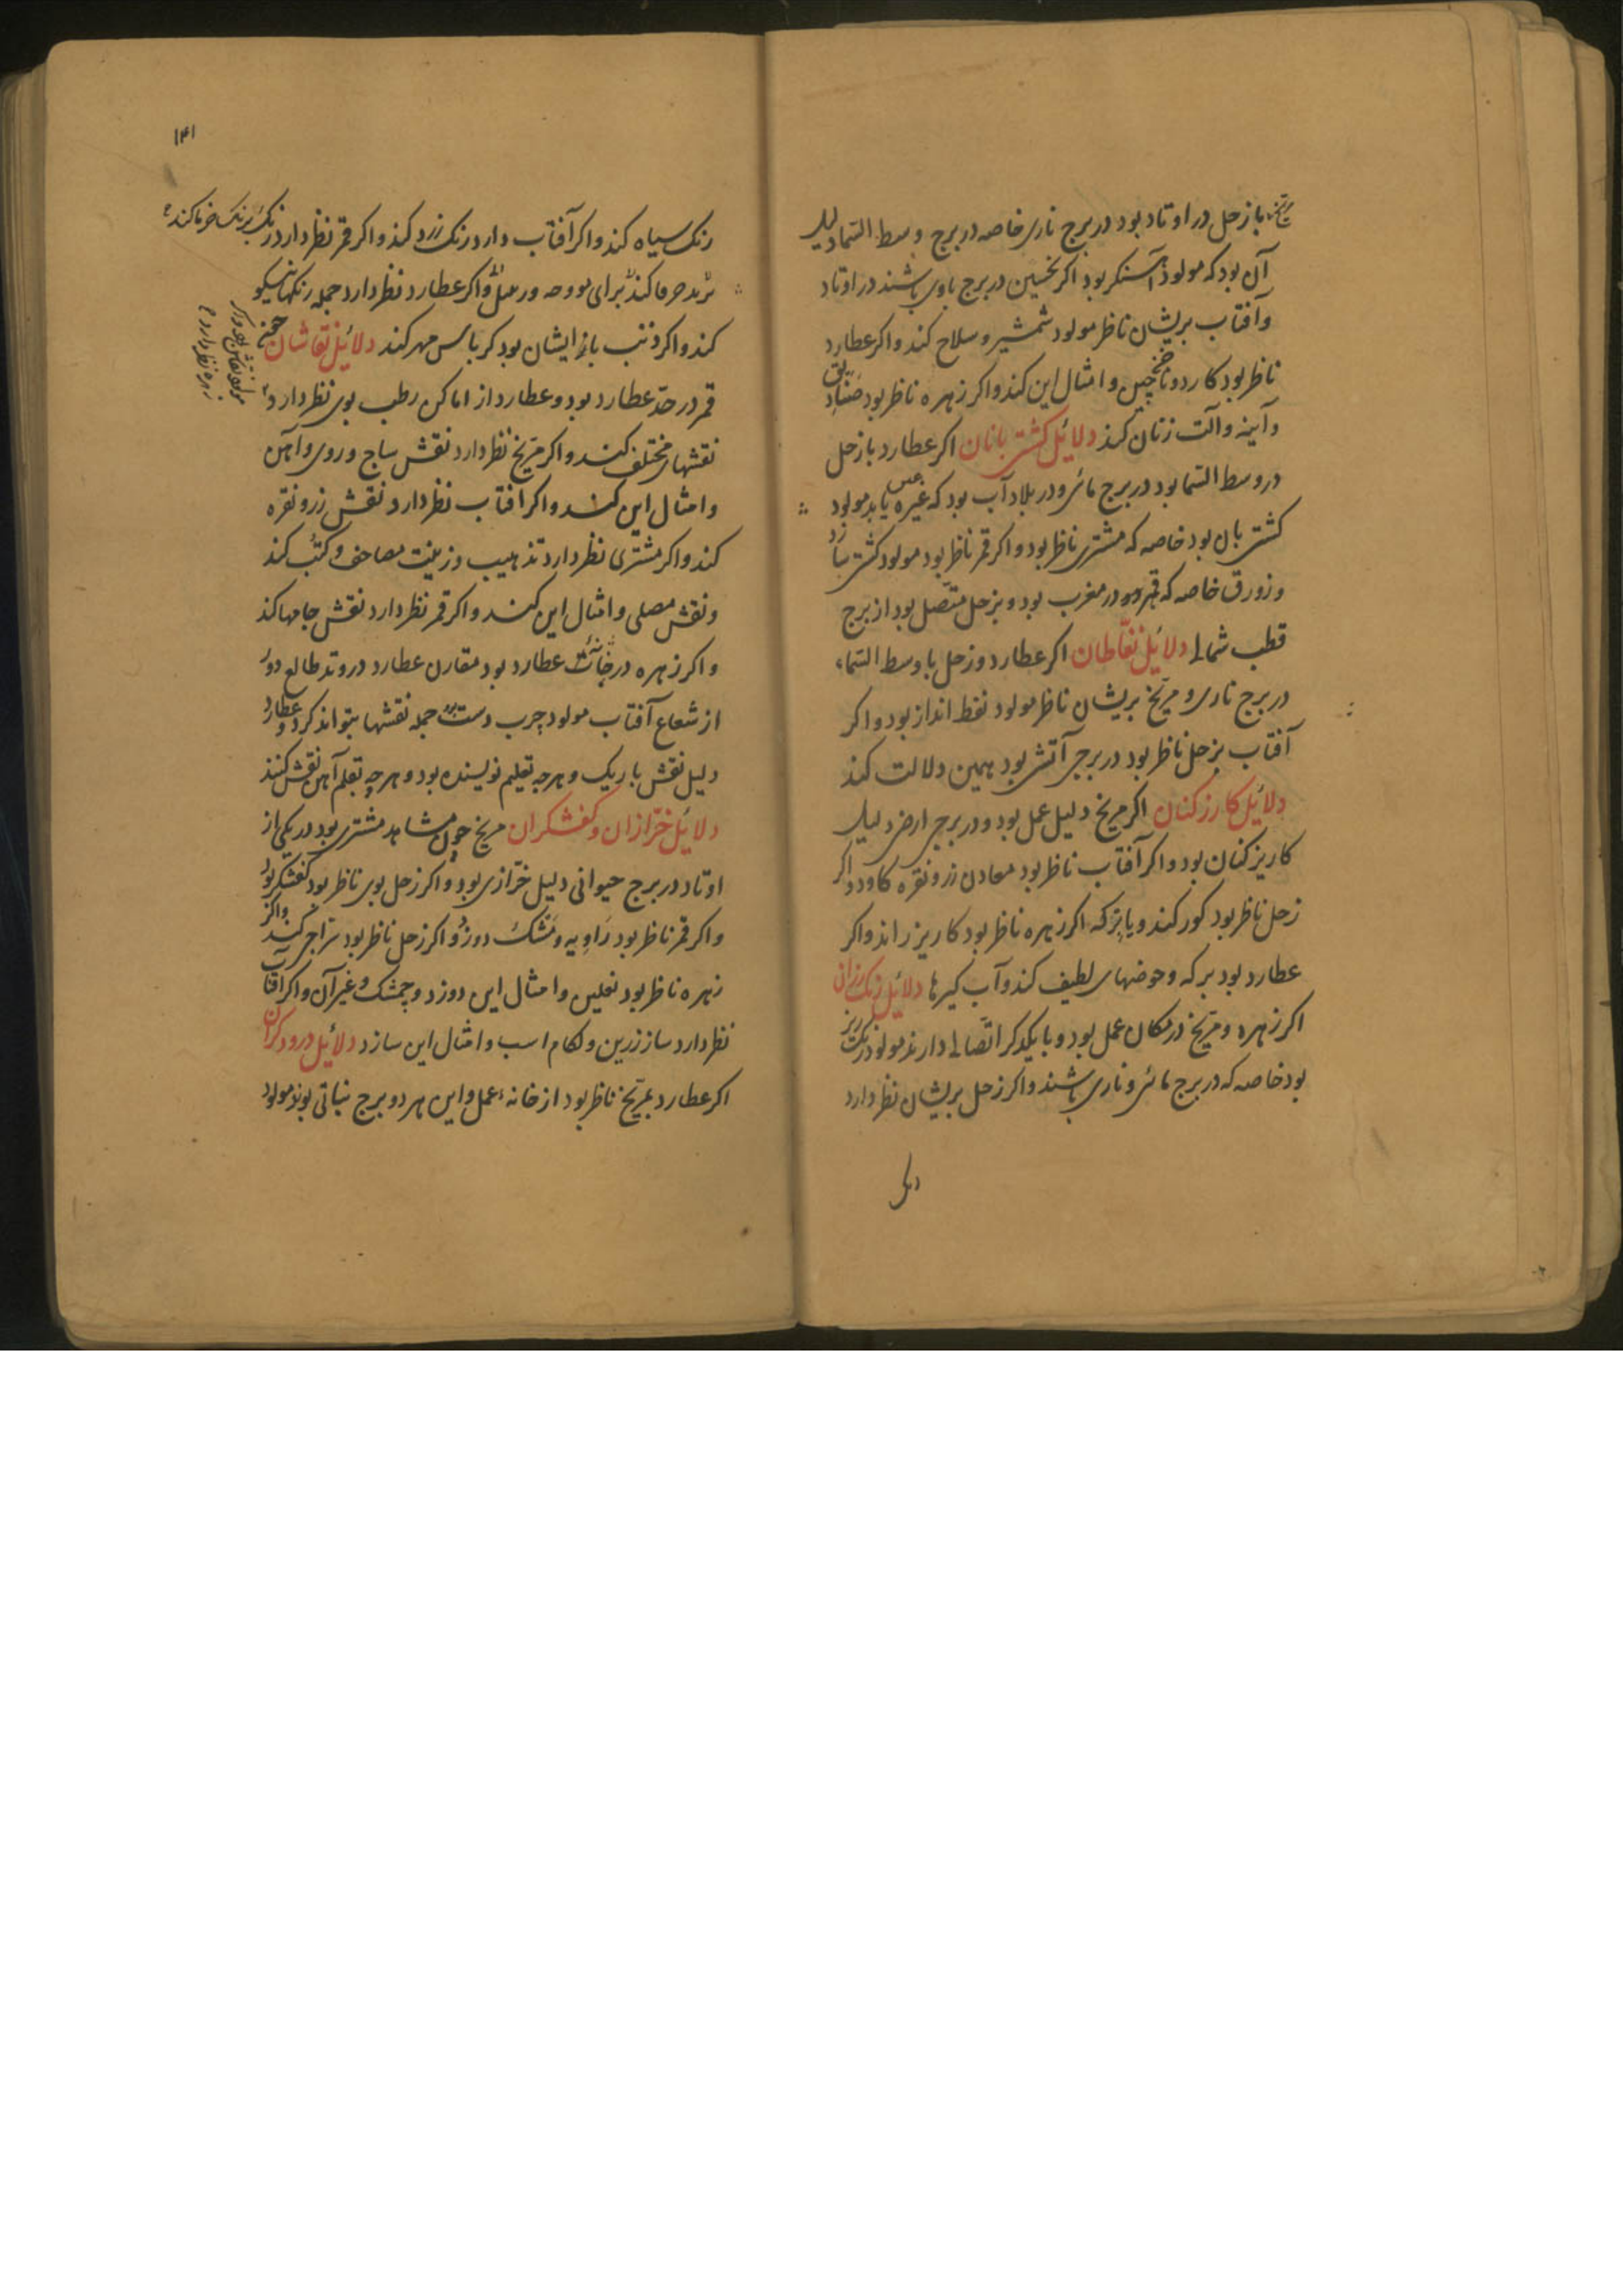 مریخ با زحل در اوتاد بود در برج ناری خاصه در برج وسط السما دلیل
آن بود که مولود آهنگر بود اگر نحسین در برج بادی باشند در اوتاد
و آفتاب بریشان ناظر مولود شمشیر و سلاح کند و اگر عطارد
ناظر بود کارد و ناخن چین و امثال این کند و اگر زهره ناظر بود صنادیق
و آینه و آلت زنان کند دلائل کشتی بانان اگر عطارد با زحل
در وسط السما بود در برج مائی و در بلاد آب بود که غیره یابد مولود
کشتی بان بود خاصه که مشتری ناظر بود و اگر قمر ناظر بود مولود کشتی سازد
و زورق خاصه که قمر در مغرب بود و بزحل متصل بود از برج
قطب شمالی دلائل نفاطان اگر عطارد و زحل با وسط السماء
در برج ناری و مریخ بریشان ناظر مولود نفط انداز بود و اگر
آفتاب بزحل ناظر بود در برجی آتشی بود همین دلالت کند
دلائل کاریز کنان اگر مریخ دلیل عمل بود و در برجی ارضی دلیل
کاریز کنان بود و اگر آفتاب ناظر بود معادن زر و نقره کاود و اگر
زحل ناظر بود کور کند و یا برکه اگر زهره ناظر بود کاریز راند و اگر
عطارد بود برکه و حوضهای لطیف کند و آب گیرها دلائل رنک رزان
اگر زهره و مریخ در مکان عمل بود و با یکدگر اتصالی دارند مولود رنک رز
بود خاصه که در برج مائی و ناری باشند و اگر زحل بریشان نظر دارد
۱۴۱
رنک سیاه کند و اگر آفتاب دارد رنک زرد کند و اگر قمر نظر دارد رنک برنک خرما کند
و اگر عطارد نظر دارد جمله رنکها نیکو
کند و اگر ذنب با ایشان بود کرباس مهر کند دلائل نقاشان چون
قمر در حد عطارد بود و عطارد از اماکن رطب بوی نظر دارد
مولود نقاش بود و اگر
زهره نظر دارد
نقشهای مختلف کند و اگر مریخ نظر دارد نقش ساج و روی و آهن
و امثال این کند و اگر افتاب نظر دارد نقش زر و نقره
کند و اگر مشتری نظر دارد تذهیب و زینت مصاحف و کتب کند
و نقش مصلی و امثال این کند و اگر قمر نظر دارد نقش جامها کند
و اگر زهره در خانه عطارد بود مقارن عطارد در وتد طالع دور
از شعاع آفتاب مولود چرب دست بود جمله نقشها بتواند کرد و عطارد
دلیل نقش باریک و هرچه بقلم نویسنده بود و هرچه بقلم آهن نقش کنند
دلائل خرازان و کفشکران مریخ چون مشاهد مشتری بود در یکی از
اوتاد در برج حیوانی دلیل خرازی بود و اگر زحل بوی ناظر بود کفشکر بود
و اگر قمر ناظر بود راویه و مشک دوزد و اگر زحل ناظر بود سراجی کند و اگر
زهره ناظر بود نعلین و امثال این دوزد و چمشک و غیر آن و اگر افتاب
نظر دارد ساز زرین و لکام اسب و امثال این سازد دلائل درودکران
اگر عطارد بمریخ ناظر بود از خانهٔ عمل و این هر دو برج نباتی بوند مولود